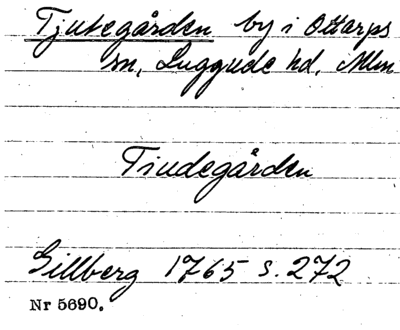 Tjutegården by i Ottarps
sn, Luggude hd, Mlm
Tiudegården
Gillberg 1765 s. 272
Nr 5690.